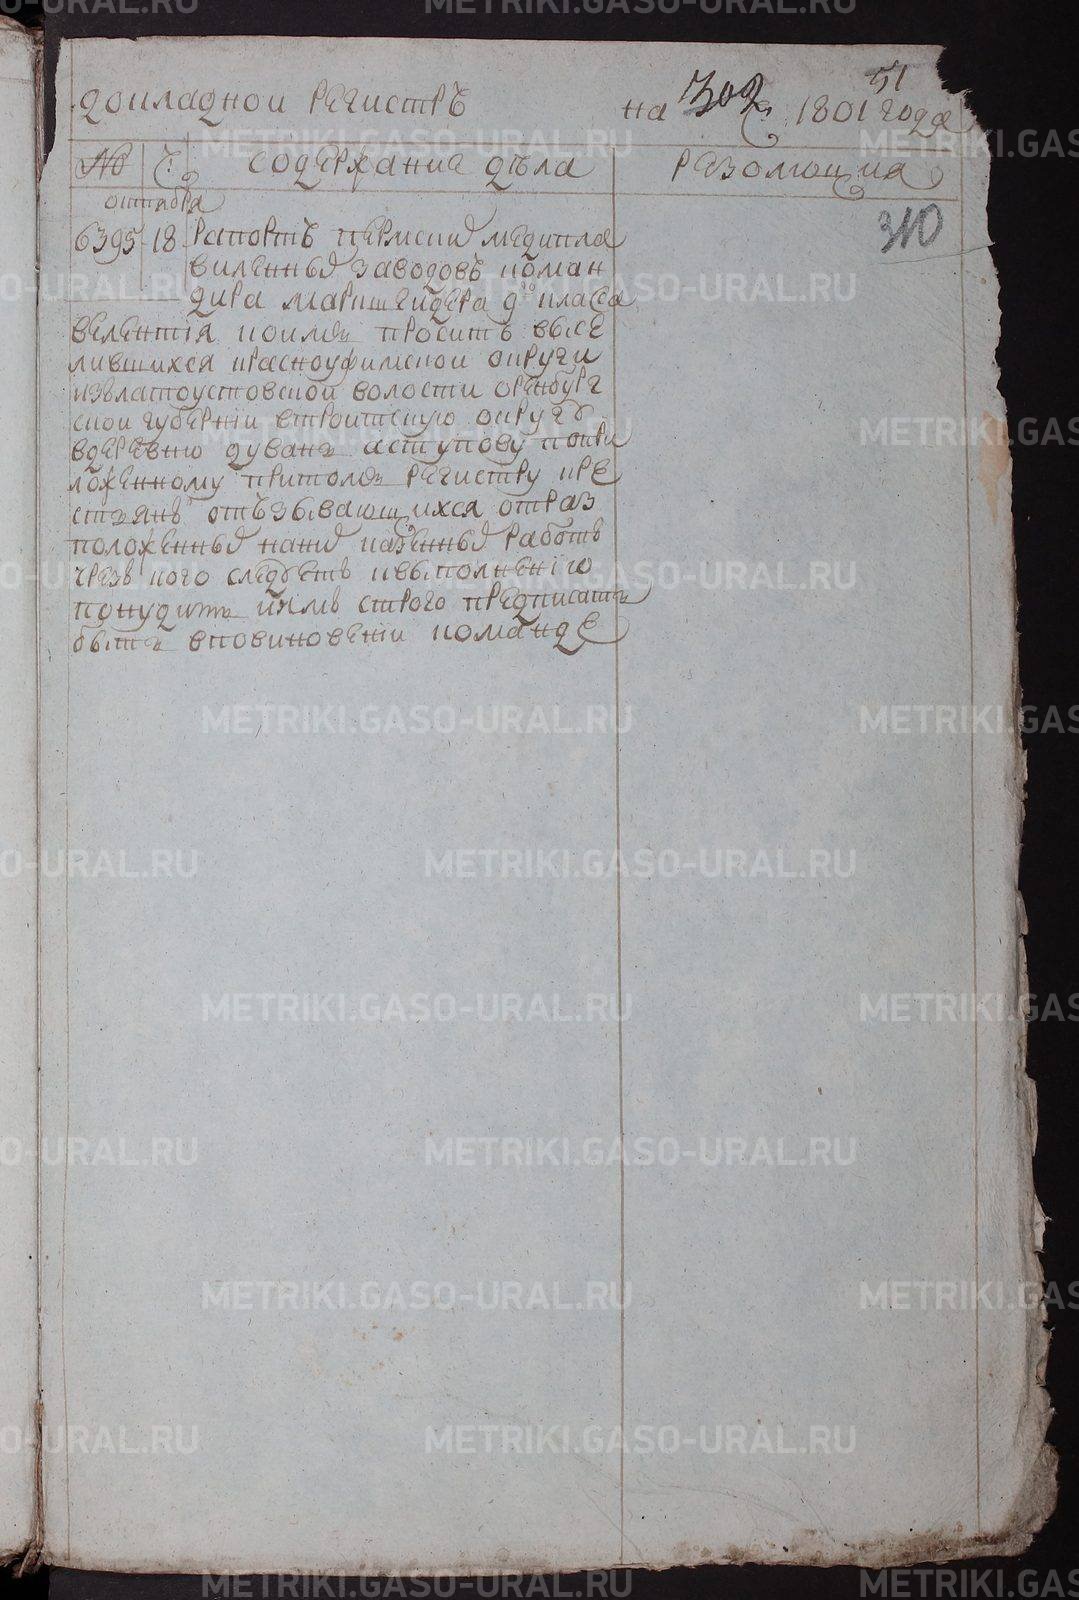 51
докладной регистръ на 1801 года
№ Ч: содержание дѣла резолюция
октября
310
6395 18 рапортъ пермских медипла
виленных заводовъ коман
дира маркшейдера 9го класса
коим проситъ высе
лившихся красноуфимской округи
иззлатоустовской волости оренбург
ской губернии втроитскую округъ
вдеревню дуван аступову попри
ложенному притом регистру кре
стьянъ отъзывающихся отраз
положенных на них казенных работъ
чрез кого следуетъ квыполнению
понудить иимъ строго предписать
быть вповиновении команде
METRIKI.GASO-URAL.RU